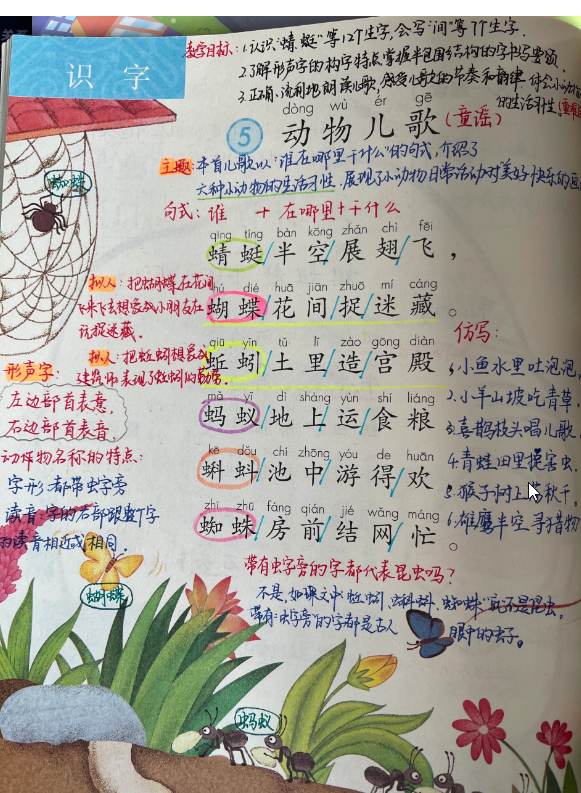 教学目标：1.认识"蜻蜓"等12个生字，会写"间"等7个生字.
识字
2.了解形声字的构字特点,掌握半包围结构的字书写要领.
3.正确、流利地朗读儿歌,感受儿歌的节奏和韵律,体会小动物
的生活习性.
dòng wù ér gē
5 动物儿歌(童谣)
主题:本首儿歌以"谁在哪里干什么"的句式,介绍了
六种小动物的生活习性,展现了小动物日常活动时美好快乐的画
句式：谁 + 在哪里+干什么
蜘蛛
qīng tíng bàn kōng zhǎn chì fēi
蜻蜓/半空/展翅/飞，
拟人：把蝴蝶在花间
飞来飞去想象成小朋友在
玩捉迷藏.
hú dié huā jiān zhuō mí cáng
蝴蝶/花间/捉/迷藏。
拟人：把蚯蚓想象成
建筑师表现了蚯蚓的勤劳.
qiū yǐn tǔ lǐ zào gōng diàn
蚯蚓/土里/造/宫殿
mǎ yǐ dì shàng yùn shí liáng
蚂蚁/地上/运/食粮
kē dǒu chí zhōng yóu de huān
蝌蚪/池中/游得/欢
zhī zhū fáng qián jié wǎng máng
蜘蛛/房前/结网/忙。
形声字：
左边部首表意,
右边部首表音.
动物名称的特点：
字形:都带虫字旁
读音:字的右部跟整个字
的读音相近或相同.
仿写：
1.小鱼水里吐泡泡,
2.小羊山坡吃青草.
3.喜鹊枝头唱儿歌,
4.青蛙田里捉害虫.
5.猴子树上荡秋千,
6.雄鹰半空寻猎物
带有虫字旁的字都代表昆虫吗？
不是.如课文中"蚯蚓、蝌蚪、蜘蛛"就不是昆虫.
带有"虫字旁"的字都是古人眼中的虫子。
蝴蝶
蚂蚁